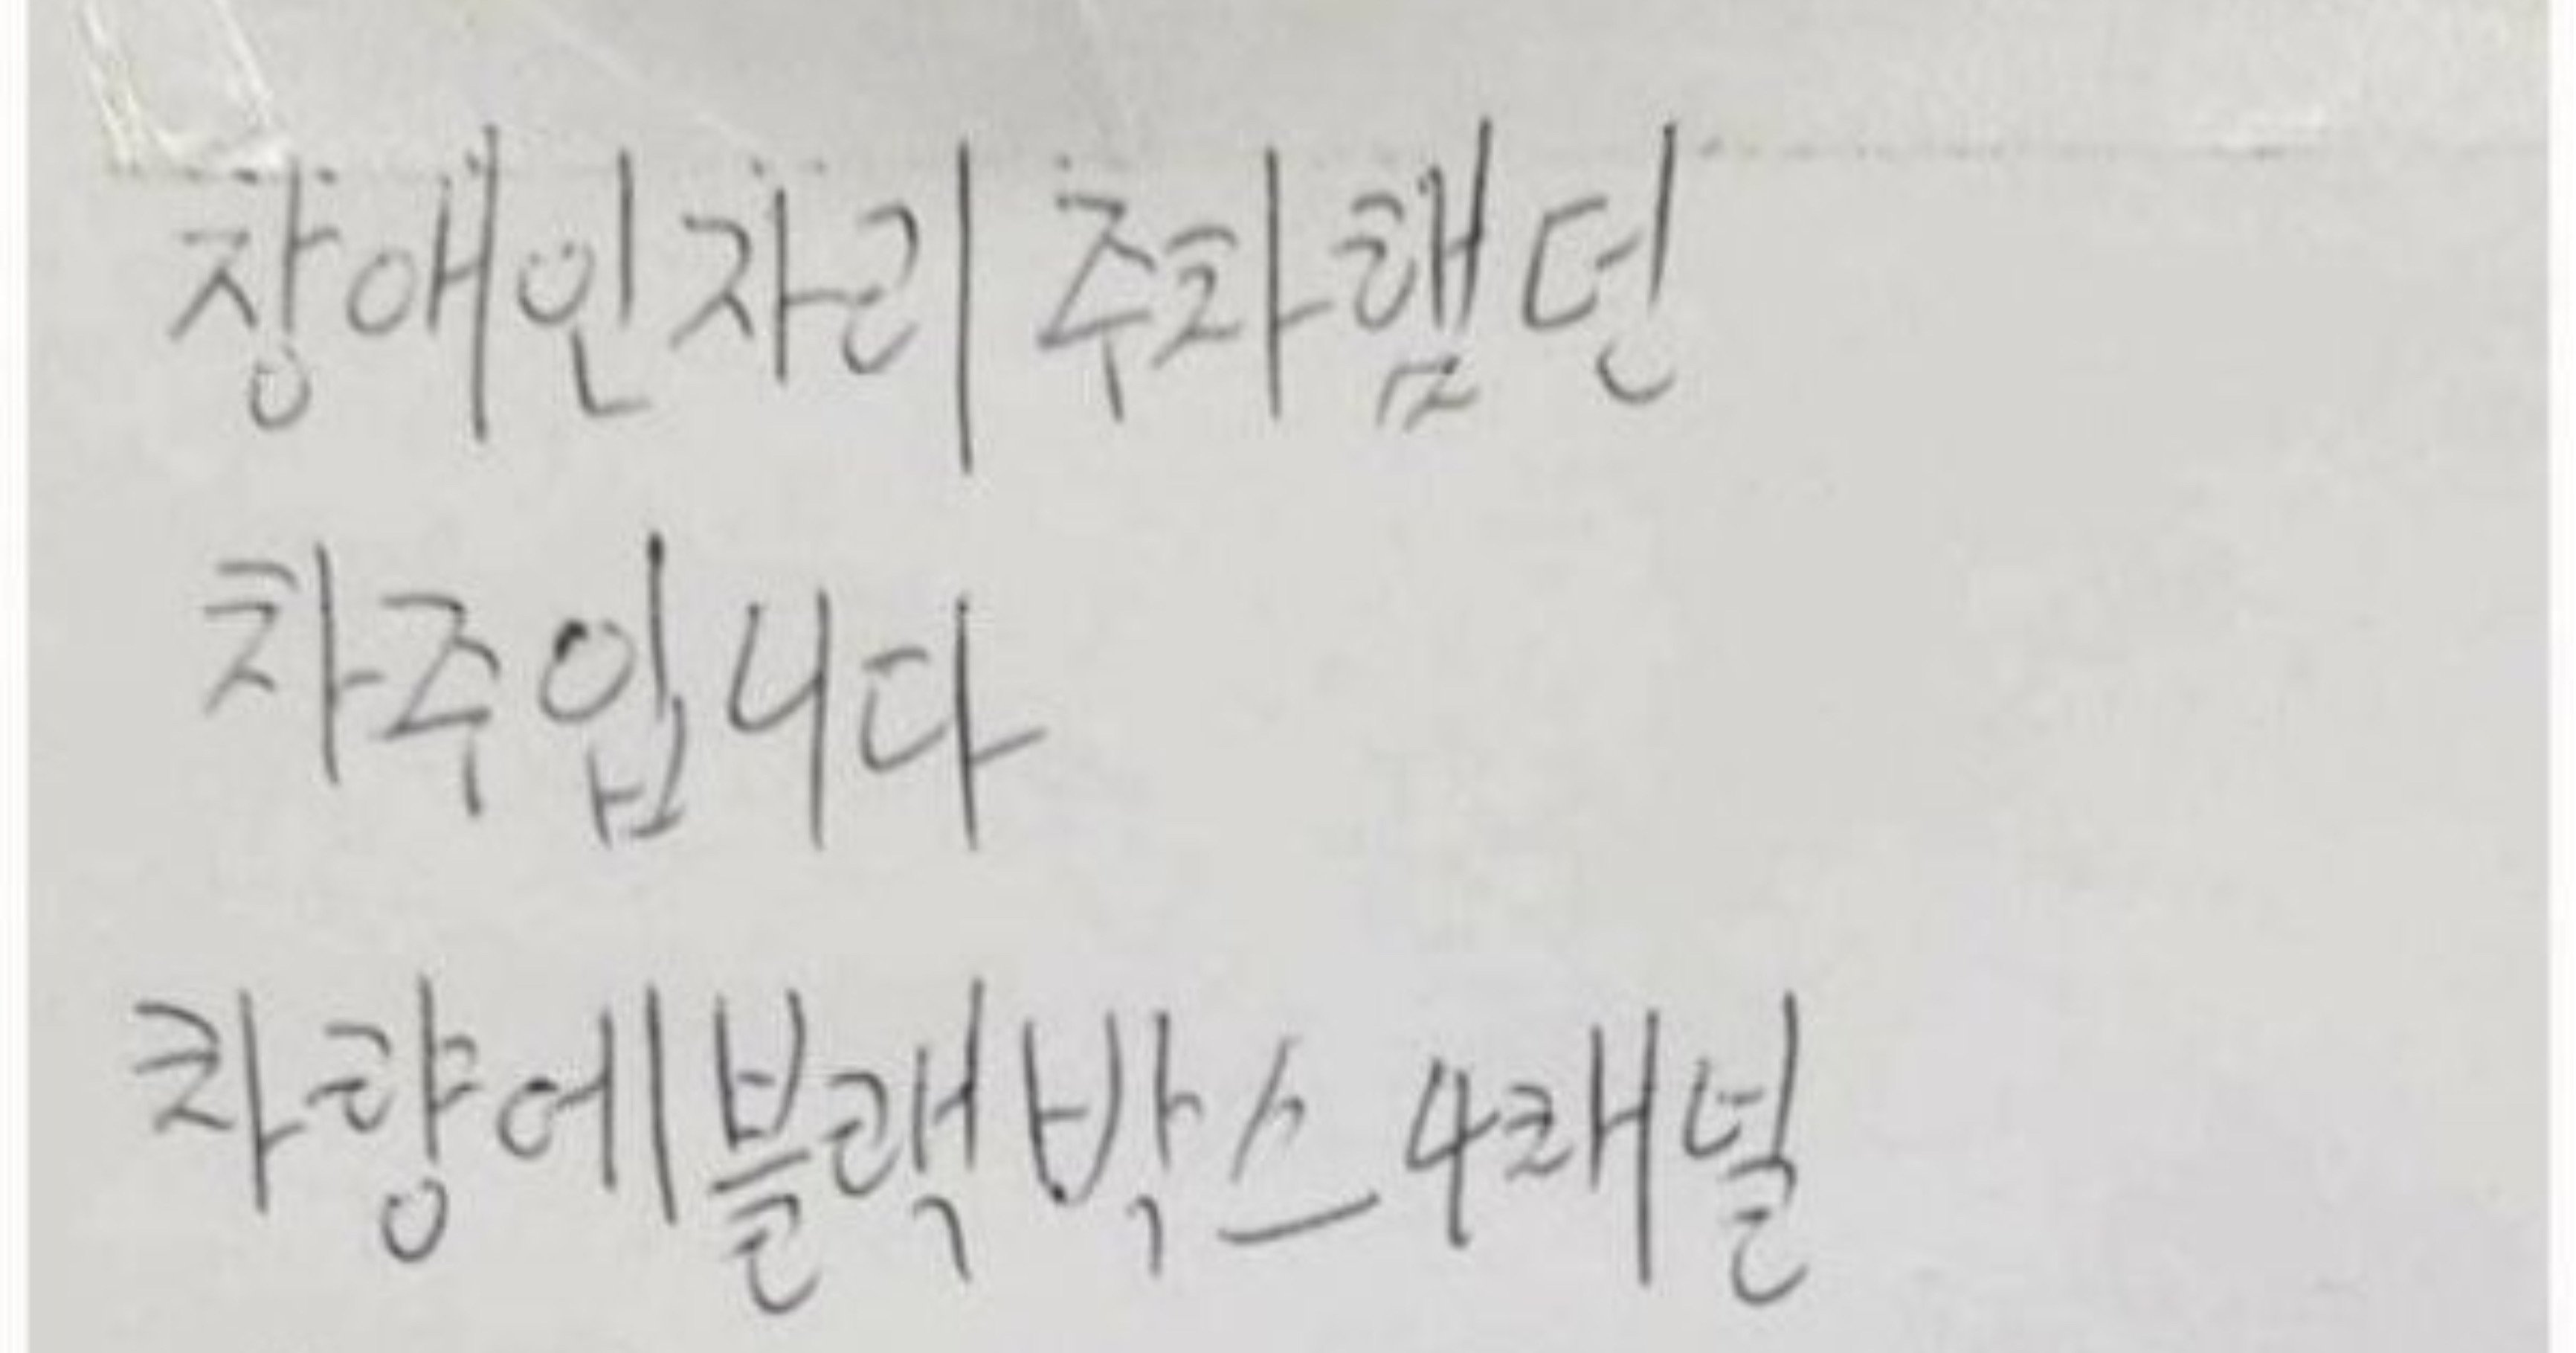 장애인자리 주차했던
차주입니다
차량에블랙박스 4채널